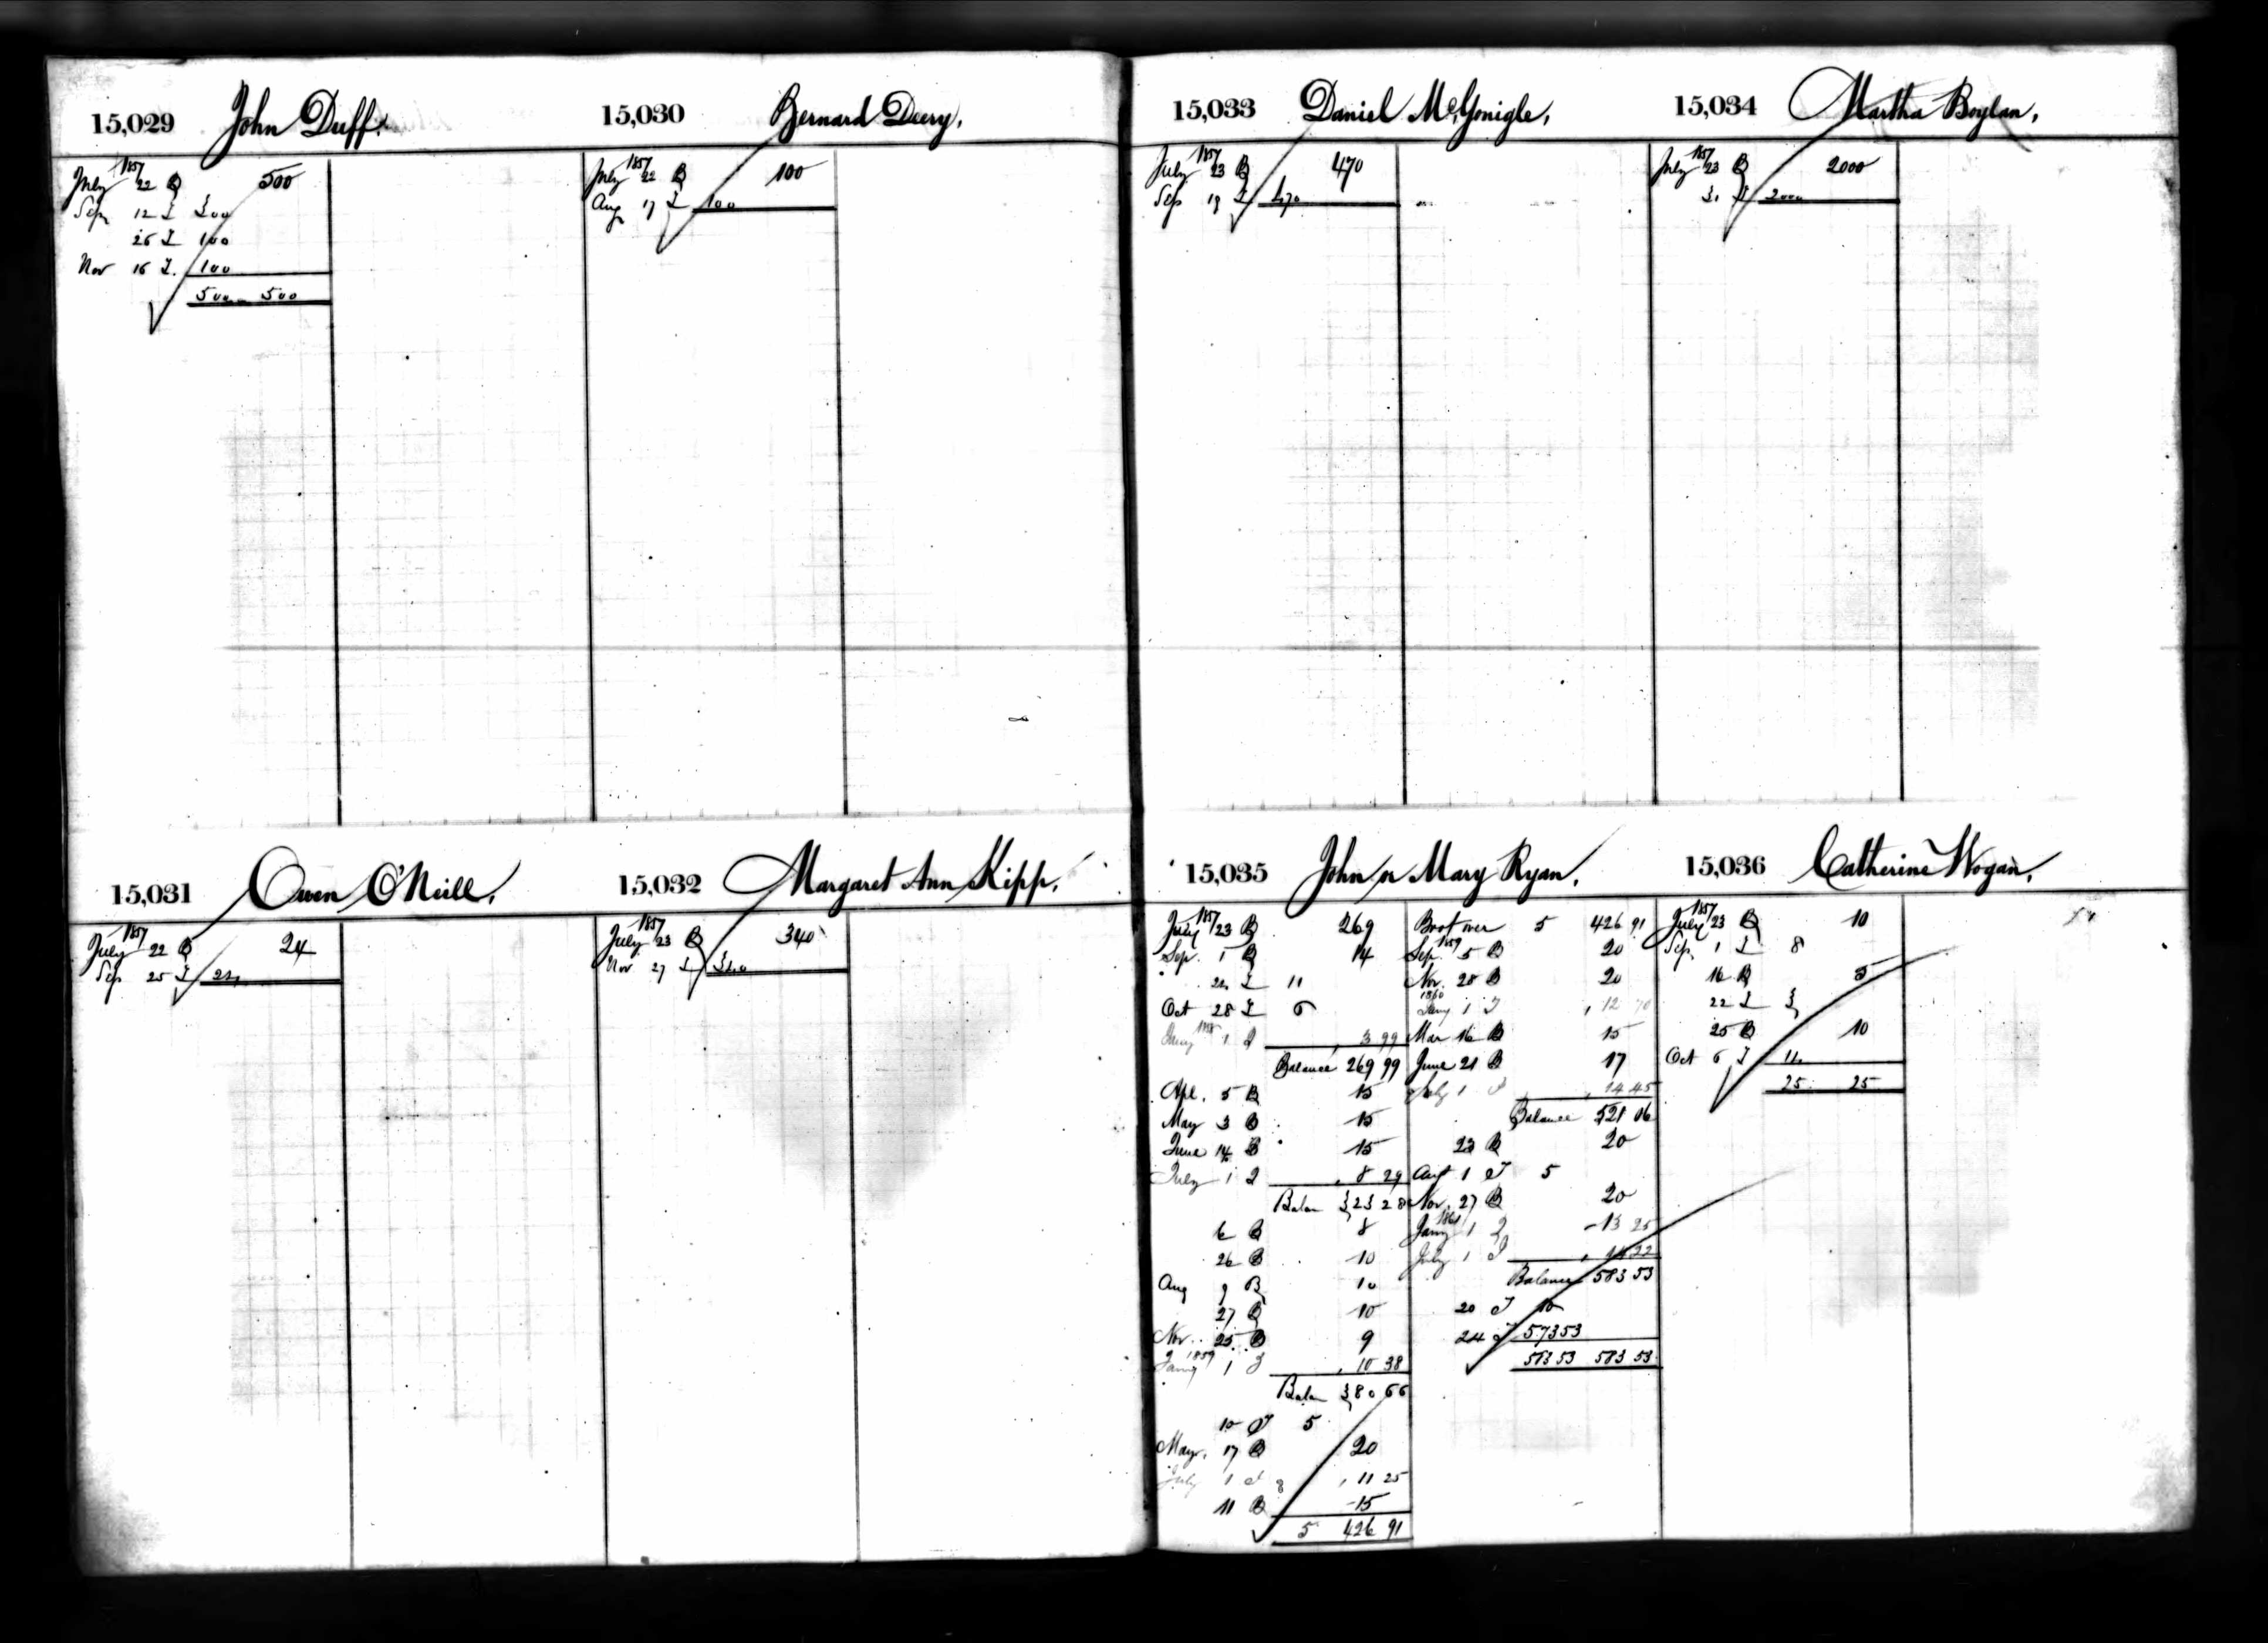 15,029 John Duff.
1857
July 22 B 500
Sep 12 I 300
26 I 100
Nov 16 I. 100
500 500
15,030 Bernard Deery,
1857
July 22 B 100
Aug 17 I 100
15,031 Owen O'Neill,
1857
July 22 B 24
Sep 25 I 24
15,032 Margaret Ann Kipp,
1857
July 23 B 340
Nov 27 I 340
15,033 Daniel McGonigle,
1857
July 23 B 470
Sep 19 I 470
15,034 Martha Boylan,
1857
July 23 B 2000
31 I 2000
15,035 John or Mary Ryan,
1857
July 23 B 269
Sep. 1 B 14
22 I 11
Oct 28 I 6
1858
Jany 1 I 3 99
Balance 269 99
Apl. 5 B 15
May 3 B 15
June 14 B 15
July 1 I 8 29
Balan 323 28
6 B 8
26 B 10
Aug 9 B 10
27 B 10
Nov. 25 B 9
1859
Jany 1 I 10 38
Balan 380 66
10 I 5
May, 17 B 20
July 1 I 11 25
11 B 15
5 426 91
Brot over 5 426 91
1859
Sep. 5 B 20
Nov. 28 B 20
1860
Jany 1 I 12 70
Mar 16 B 15
June 21 B 17
July 1 I 14 45
Balance 521 06
23 B 20
Augt 1 I 5
Nov. 27 B 20
1861
Jany 1 I 13 25
July 1 I 14 22
Balance 583 53
20 I 10
24 I 573 53
583 53 583 53
15,036 Catherine Wogan,
1857
July 23 B 10
Sep. 1 I 8
16 B 5
22 I 3
25 B 10
Oct 6 I 14
25 25